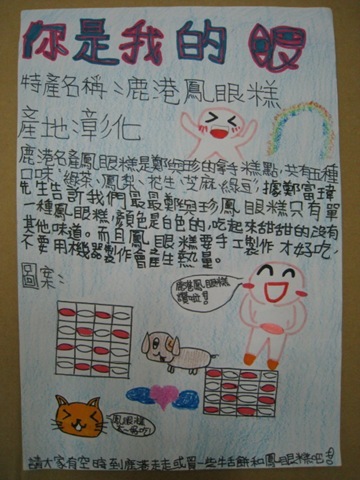 你是我的眼
特產名稱:鹿港鳳眼糕
產地:彰化
鹿港名產鳳眼糕是鄭興珍的拿手糕點,共有五種
口味:綠茶、鳳梨、花生、芝麻、綠豆,據鄭富瑋
先生告訴我們最早鄭興珍鳳眼糕只有單
一種鳳眼糕,顏色是白色的,吃起來甜甜的沒有
其他味道。而且鳳眼糕要手工製作才好吃,
不要用機器製作會產生熱量。
圖案:
鹿港鳳眼糕
讚啦!
鳳眼糕
請大家有空時到鹿港走走或買一些牛舌餅和鳳眼糕吧!